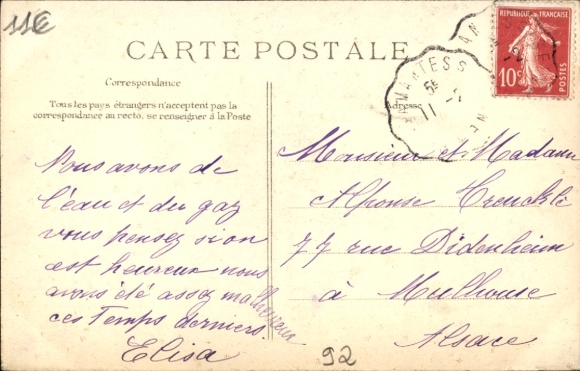 11€
CARTE POSTALE
Correspondance
Tous les pays étrangers n'acceptent pas la
correspondance au recto, se renseigner à la Poste
Nous avons de
l'eau et du gaz
vous pensez si on
est heureux nous
avons été assez malheureux
ces Temps derniers.
Elisa
Adresse
Monsieur et Madame
Alphonse
77 rue Didenheim
à Mulhouse
Alsace
92
REPUBLIQUE FRANÇAISE
10c
POSTES